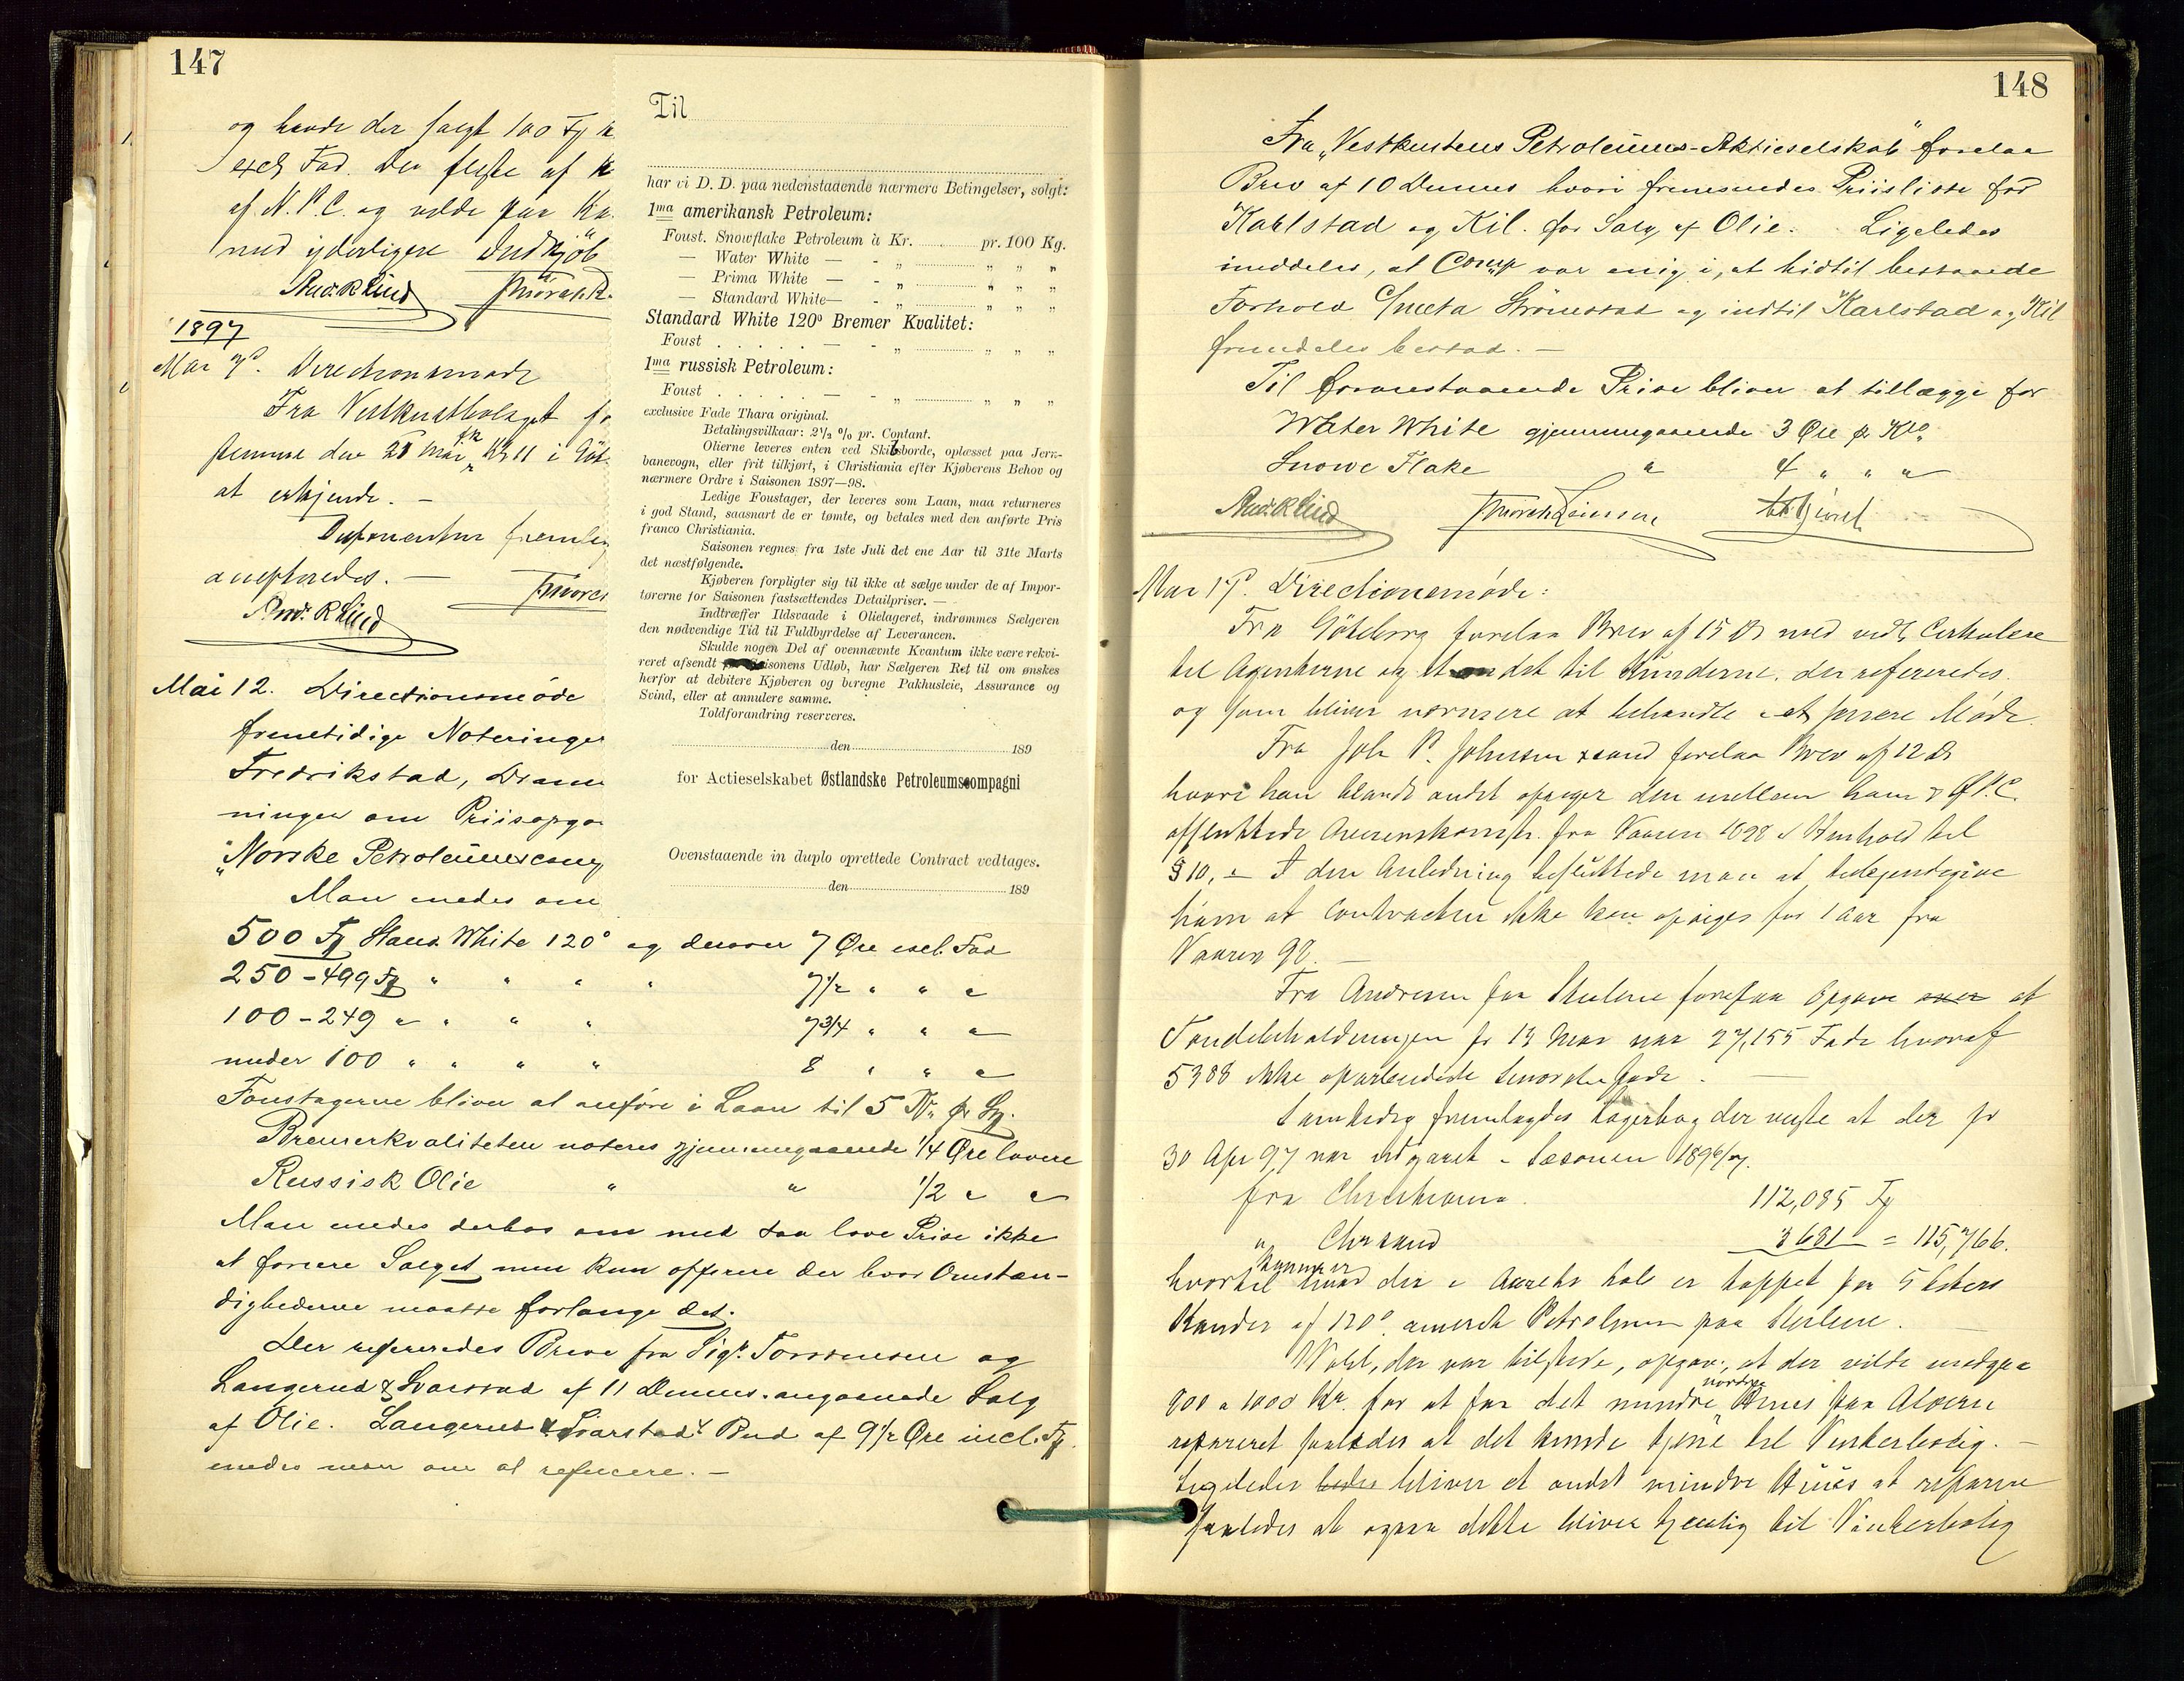 147
og havde der solgt 100 Fg
excl Fad. De fleste af
af N.P.C. og vilde paa
med yderligere Indkjøb
Andr. R Lind
1897
Mai 7d. Directionsmøde
Fra Vestkustbolaget
den 28 Mai Kl 11 i Göt-
at erkjende. —
Disponenten fremlag
accepteredes. —
Andr. R Lind
Mai 12. Directionsmøde
fremtidige Noteringer
Fredrikstad, Dram
ninger om Priisopga
"Norske Petroleumscomp
Man enedes om
500 Fg Stand. White 120° og derover 7 Øre excl. Fad
250 – 499 Fg " " " " 7 1/2 " " "
100 – 249 " " " " 7 3/4 " " "
under 100 " " " " 8 " " "
Foustagerne bliver at anføre i Laan til 5 Kr pr Fg.
Bremerkvaliteten noteres gjennemgaaende 1/4 Øre lavere
Russisk Olie " " 1/2 " "
Man enedes derhos om med saa lave Prise ikke
at forcere Salget men kun offerere der hvor Omstæn-
dighederne maatte forlange det.
Der refereredes Breve fra Sigd. Torstensen og
Langerud & Svarstad af 11 Dennes angaaende Salg
af Olie. Langerud & Svarstads Bud af 9 1/2 Øre incl. Fg.
enedes man om at refusere. —
Til
har vi D. D. paa nedenstaaende nærmere Betingelser, solgt:
1ma amerikansk Petroleum:
Foust. Snowflake Petroleum à Kr. pr. 100 Kg.
— Water White — - „ „ „ „
— Prima White — - „ „ „ „
— Standard White — - „ „ „ „
Standard White 120° Bremer Kvalitet:
Foust . . . . . — - „ „ „ „
1ma russisk Petroleum:
Foust . . . . . — - „ „ „ „
exclusive Fade Thara original.
Betalingsvilkaar: 2 1/2 % pr. Contant.
Olierne leveres enten ved Skibsborde, oplæsset paa Jern-
banevogn, eller frit tilkjørt, i Christiania efter Kjøberens Behov og
nærmere Ordre i Saisonen 1897—98.
Ledige Foustager, der leveres som Laan, maa returneres
i god Stand, saasnart de er tømte, og betales med den anførte Pris
franco Christiania.
Saisonen regnes fra 1ste Juli det ene Aar til 31te Marts
det næstfølgende.
Kjøberen forpligter sig til ikke at sælge under de af Impor-
tørerne for Saisonen fastsættendes Detailpriser. —
Indtræffer Ildsvaade i Olielageret, indrømmes Sælgeren
den nødvendige Tid til Fuldbyrdelse af Leverancen.
Skulde nogen Del af ovennævnte Kvantum ikke være rekvi-
reret afsendt isonens Udløb, har Sælgeren Ret til om ønskes
herfor at debitere Kjøberen og beregne Pakhusleie, Assurance og
Svind, eller at annulere samme.
Toldforandring reserveres.
den 189
for Actieselskabet Østlandske Petroleumscompagni
Ovenstaaende in duplo oprettede Contract vedtages.
den 189
148
Fra „Vestkustens Petroleums-Aktieselskab" forelaa
Brev af 10 Dennes hvori fremsendes Priisliste for
Karlstad og Kil. for Salg af Olie. Ligeledes
meddeles, at Comp var enig i, at hidtil bestaaende
Forhold Strømstad og indtil Karlstad og Kil
fremdeles bestod. —
Til foranstaaende Prise bliver at tillægge for
Water White gjennemgaaende 3 Øre pr Klo.
Snowe Flake " 4 " " "
Andr. R Lind
Mai 17d. Directionsmøde:
Fra Göteborg forelaa Brev af 15 ds med vedl Cirkulære
til Agenterne og et andet til Kunderne, der refereredes.
og som bliver nærmere at behandle i et senere Møde.
Fra Joh P. Johnsen forelaa Brev af 12 ds
hvori han blandt andet opsiger den mellem ham & Ø.P.C.
afsluttede fra Vaaren 1898 i Henhold til
§ 10. — I den Anledning besluttede man at tilkjendegive
ham at Contracten ikke kan opsiges før 1 Aar fra
Vaaren 98. —
Fra Andresen paa Steilene forelaa Opgave over at
Tøndebeholdningen pr 13 Mai var 27,155 Fade hvoraf
5388 ikke oparbeidede Fade. —
Samtidig fremlagdes Lagerbog der viste at der pr
30 Apr 97 var udgaaet i Sæsonen 1896/97.
fra Christiania 112,085 Fg
" Chrsand 3681 = 115,766.
hvortil kommer hvad der i Aarets Løb er tappet paa 5 Liters
Kander af 120° amerik Petroleum paa Steilene. —
Wahl, der var tilstede, opgav, at der vilde medgaa
800 a 1000 Kr. for at faa det mindre nordre Huus paa Alværn
repareret saaledes at det kunde tjene til Vinterbolig. —
Ligeledes bedes bliver et andet mindre Huus at reparere
saaledes at ogsaa dette bliver tjenlig til Vinterbolig